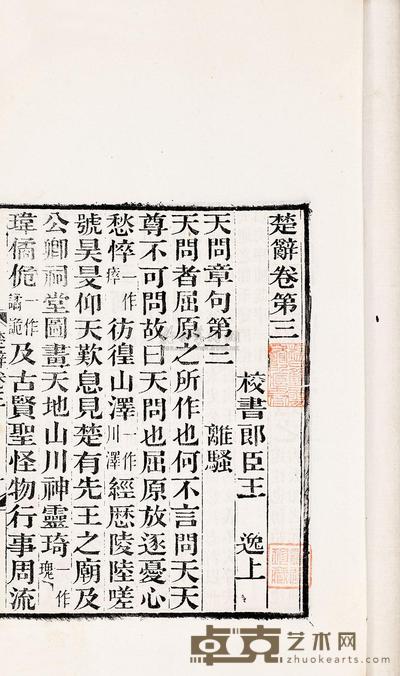 楚辭卷第三
校書郎臣王 逸上
天問章句第三 離騷
天問者屈原之所作也何不言問天天
尊不可問故曰天問也屈原放逐憂心
愁悴一作瘁彷徨山澤一作川澤經歷陵陸嗟
號昊旻仰天歎息見楚有先王之廟及
公卿祠堂圖畫天地山川神靈琦一作瑰
瑋僪佹一作譎詭及古賢聖怪物行事周流
卓克艺术网
www.zhuokearts.com